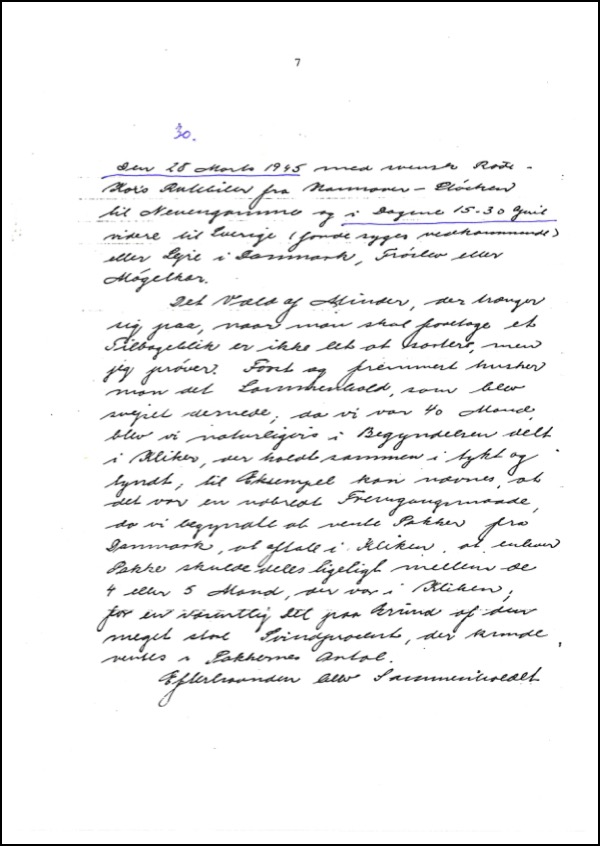 7
30.
Den 28 Marts 1945 med svensk Røde-
Kors Rutebiler fra Hannover - Stöcken
til Neuengamme og i Dagene 15-30 April
videre til Sverige (for de syges vedkommende)
eller Lejr i Danmark, Frøslev eller
Møgelkær.
Det Væld af Minder, der trænger
sig paa, naar man skal foretage et
Tilbageblik er ikke let at sortere, men
jeg prøver. Først og fremmest husker
man det Sammenhold, som blev
svejset dernede; da vi var 40 Mand,
blev vi naturligvis i Begyndelsen delt
i Kliker, der holdt sammen i tykt og
tyndt; til Eksempel kan nævnes, at
det var en udbredt Fremgangsmaade,
da vi begyndte at vente Pakker fra
Danmark, at aftale i Kliken, at enhver
Pakke skulde deles ligeligt mellem de
4 eller 5 Mand, der var i Kliken;
for en væsentlig Del paa Grund af den
meget store Svindprocent, der kunde
ventes i Pakkernes Antal.
Efterhaanden blev Sammenholdet